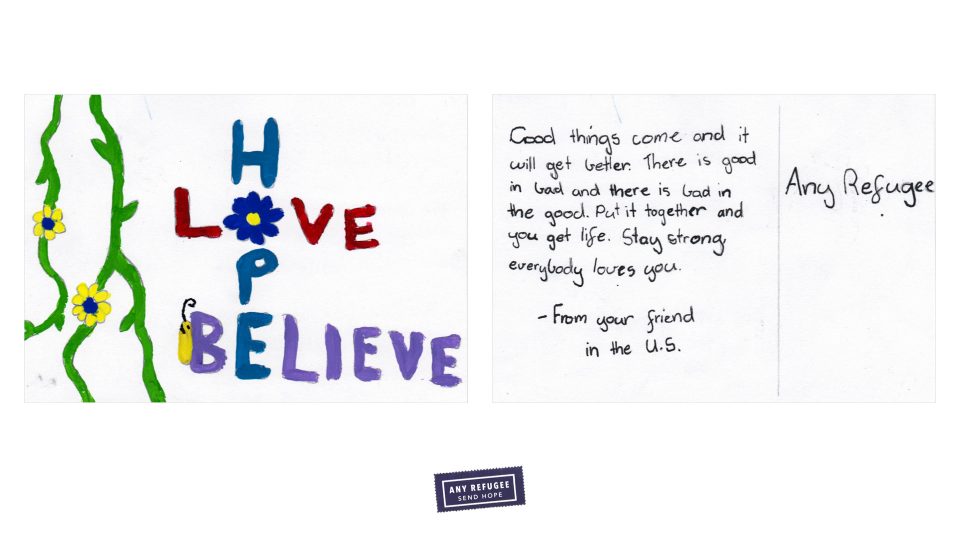 HOPE
LOVE
BELIEVE
Good things come and it
will get better. There is good
in bad and there is bad in
the good. Put it together and
you get life. Stay strong,
everybody loves you.
- From your friend
in the U.S.
Any Refugee
ANY REFUGEE
SEND HOPE